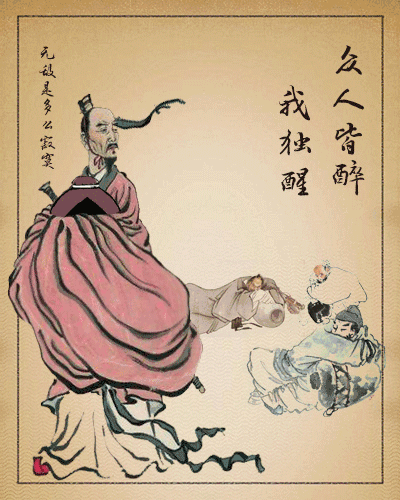 众人皆醉
我独醒
无敌是多么寂寞